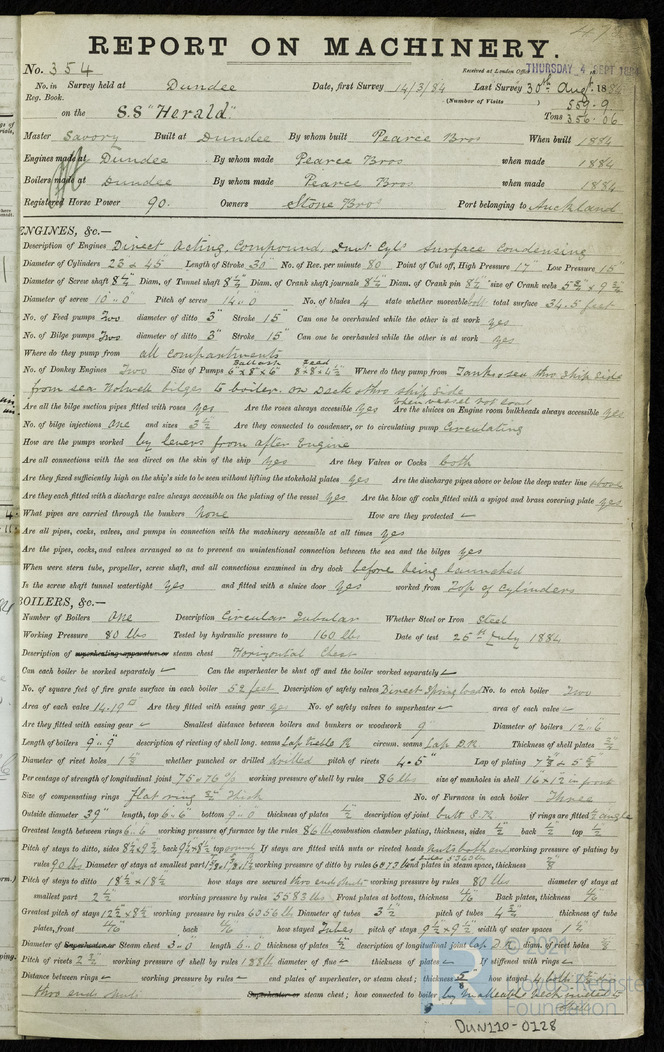 REPORT ON MACHINERY.
No. 354 Received at London Office THURSDAY 4 SEPT 1884
No. in Survey held at Dundee Date, first Survey 14/3/84 Last Survey 30th Augt. 1884
Reg. Book. (Number of Visits )
on the S.S "Herald" Tons 559.9 356.06
Master Savory Built at Dundee By whom built Pearce Bros When built 1884
Engines made at Dundee By whom made Pearce Bros when made 1884
Boilers made at Dundee By whom made Pearce Bros when made 1884
Registered Horse Power 90. Owners Stone Bros Port belonging to Auckland
ENGINES, &c.—
Description of Engines Direct Acting, Compound, Surface Condensing
Diameter of Cylinders 23 & 45 Length of Stroke 30" No. of Rev. per minute 80 Point of Cut off, High Pressure 17" Low Pressure 15"
Diameter of Screw shaft 8¼" Diam. of Tunnel shaft 8¼ Diam. of Crank shaft journals 8¼ Diam. of Crank pin 8¼" size of Crank webs
Diameter of screw 10"0 Pitch of screw 14"0 No. of blades 4 state whether moveable total surface 34.5 feet
No. of Feed pumps Two diameter of ditto 3" Stroke 15" Can one be overhauled while the other is at work yes
No. of Bilge pumps Two diameter of ditto 3" Stroke 15" Can one be overhauled while the other is at work yes
Where do they pump from all compartments
No. of Donkey Engines Two Size of Pumps Ballast 6"x8"x6" Feed Where do they pump from Tanks & sea thro ship side
from sea Hotwell bilges to boiler. on Deck & thro ship side
Are all the bilge suction pipes fitted with roses yes Are the roses always accessible yes Are the sluices on Engine room bulkheads always accessible yes
No. of bilge injections one and sizes 3½ Are they connected to condenser, or to circulating pump Circulating
How are the pumps worked by levers from after Engine
Are all connections with the sea direct on the skin of the ship yes Are they Valves or Cocks both
Are they fixed sufficiently high on the ship's side to be seen without lifting the stokehold plates yes Are the discharge pipes above or below the deep water line above
Are they each fitted with a discharge valve always accessible on the plating of the vessel yes Are the blow off cocks fitted with a spigot and brass covering plate yes
What pipes are carried through the bunkers None How are they protected ✓
Are all pipes, cocks, valves, and pumps in connection with the machinery accessible at all times yes
Are the pipes, cocks, and valves arranged so as to prevent an unintentional connection between the sea and the bilges yes
When were stern tube, propeller, screw shaft, and all connections examined in dry dock before being launched
Is the screw shaft tunnel watertight yes and fitted with a sluice door yes worked from Top of Cylinders
BOILERS, &c.—
Number of Boilers One Description Circular Tubular Whether Steel or Iron Steel
Working Pressure 80 lbs Tested by hydraulic pressure to 160 lbs Date of test 25th July 1884
Description of superheating apparatus or steam chest Horizontal Chest
Can each boiler be worked separately ✓ Can the superheater be shut off and the boiler worked separately ✓
No. of square feet of fire grate surface in each boiler 52 feet Description of safety valves Direct Spring load No. to each boiler Two
Area of each valve 14.19 Are they fitted with easing gear yes No. of safety valves to superheater ✓ area of each valve ✓
Are they fitted with easing gear ✓ Smallest distance between boilers and bunkers or woodwork 9" Diameter of boilers 12"6
Length of boilers 9"9" description of riveting of shell long. seams Lap treble R circum. seams Lap D.R. Thickness of shell plates
Diameter of rivet holes whether punched or drilled drilled pitch of rivets 4.5" Lap of plating
Percentage of strength of longitudinal joint 75 & 76 % working pressure of shell by rules 86 lbs size of manholes in shell 16"x12 in front
Size of compensating rings flat ring thick No. of Furnaces in each boiler Three
Outside diameter 39" length, top 6"6" bottom 9"0 thickness of plates ½" description of joint butt S.R. if rings are fitted angle
Greatest length between rings 6"6 working pressure of furnace by the rules 86 lb combustion chamber plating, thickness, sides ½ back ½" top
Pitch of stays to ditto, sides back top If stays are fitted with nuts or riveted heads nuts both ends working pressure of plating by
rules 90 lbs Diameter of stays at smallest part working pressure of ditto by rules end plates in steam space, thickness
Pitch of stays to ditto 18½ x 18½ how stays are secured thro ends & nuts working pressure by rules 80 lbs diameter of stays at
smallest part 2¼" working pressure by rules 5583 lbs Front plates at bottom, thickness Back plates, thickness
Greatest pitch of stays working pressure by rules 6056 lbs Diameter of tubes 3½ pitch of tubes thickness of tube
plates, front back how stayed Tubes pitch of stays 9½ x 9½ width of water spaces
Diameter of Superheater or Steam chest 3"0 length 6"0 thickness of plates description of longitudinal joint Lap D.R. diam. of rivet holes
Pitch of rivets working pressure by rules 188 lb diameter of flue ✓ thickness of plates ✓ If stiffened with rings ✓
Distance between rings ✓ working pressure by rules ✓ end plates of superheater, or steam chest; thickness how stayed
thro ends nuts Superheater or steam chest; how connected to boiler by malleable neck riveted
© 202
Lloyd's Register
Foundation
DUN110-0128